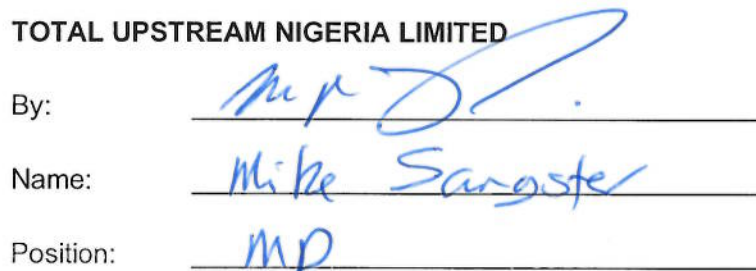 TOTAL UPSTREAM NIGERIA LIMITED
By:
Name: Mike Sangster
Position: MD